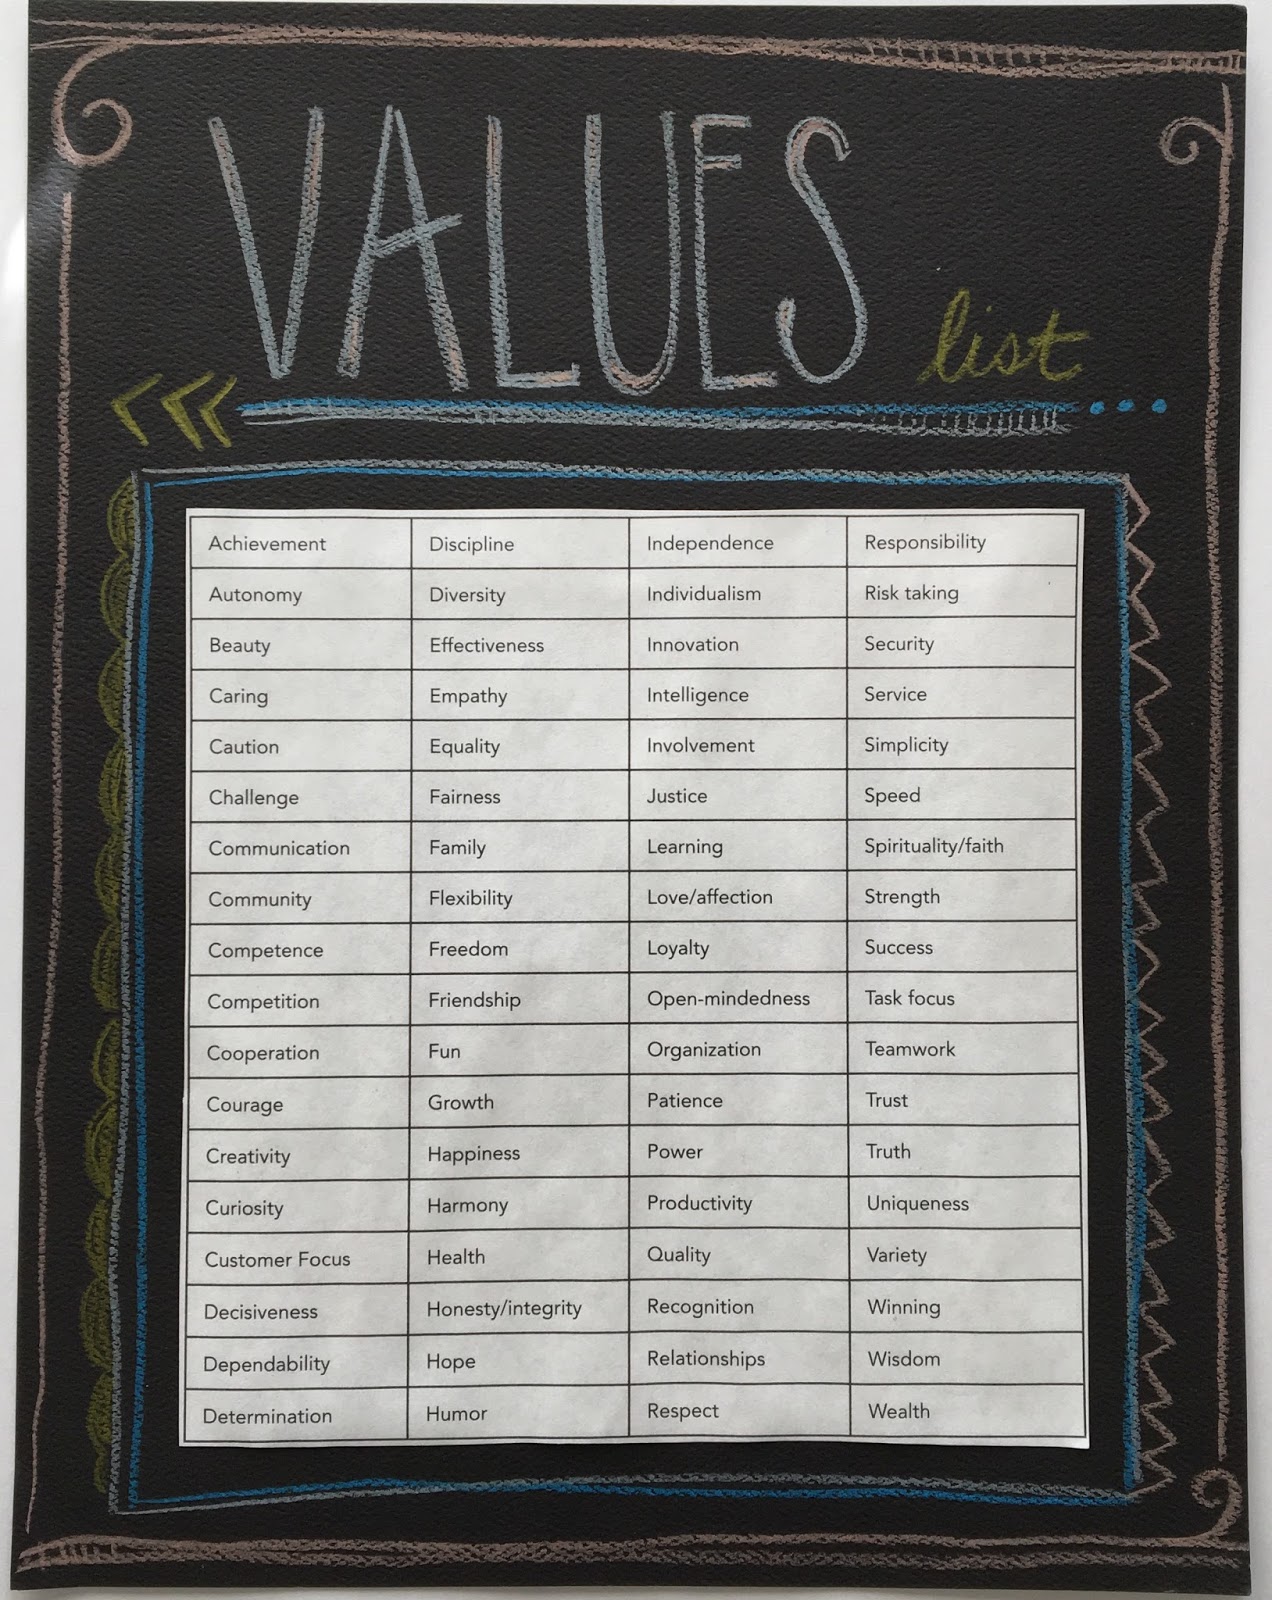 VALUES
list
Achievement Discipline Independence Responsibility
Autonomy Diversity Individualism Risk taking
Beauty Effectiveness Innovation Security
Caring Empathy Intelligence Service
Caution Equality Involvement Simplicity
Challenge Fairness Justice Speed
Communication Family Learning Spirituality/faith
Community Flexibility Love/affection Strength
Competence Freedom Loyalty Success
Competition Friendship Open-mindedness Task focus
Cooperation Fun Organization Teamwork
Courage Growth Patience Trust
Creativity Happiness Power Truth
Curiosity Harmony Productivity Uniqueness
Customer Focus Health Quality Variety
Decisiveness Honesty/integrity Recognition Winning
Dependability Hope Relationships Wisdom
Determination Humor Respect Wealth